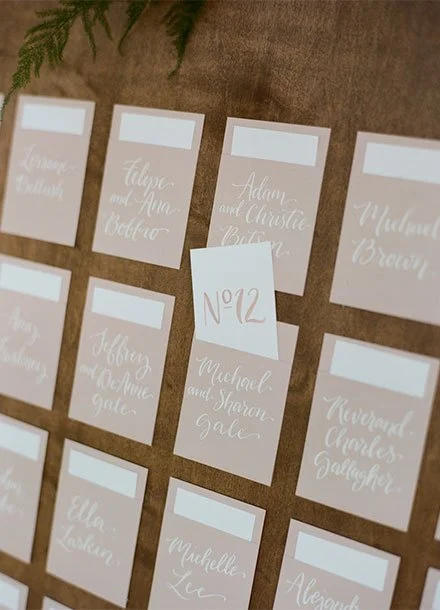 Lorraine
Felipe
and Ana
Bobbio
Adam
and Christie
Michael
Brown
Amy
Jeffrey
and DeAnne
Gale
Nº12
Michael
and Sharon
Gale
Reverand
Charles
Gallagher
Ella
Larkin
Michelle
Lee